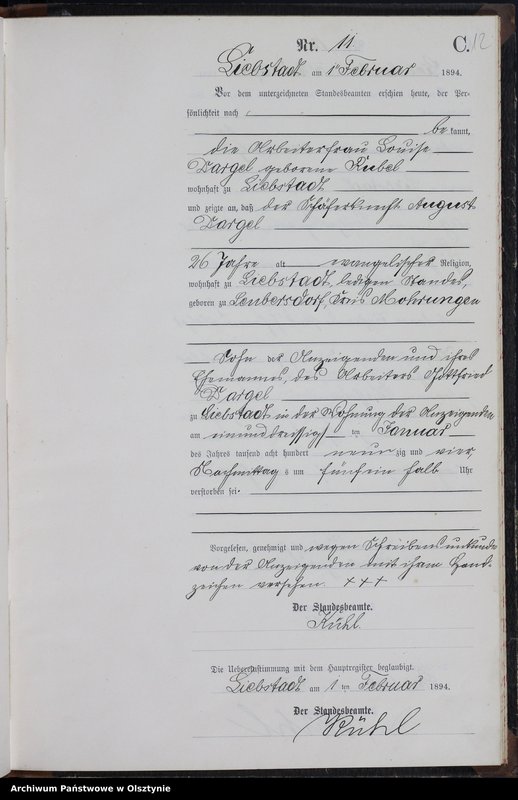 Nr. 11
C. 12
Liebstadt am 1 Februar 1894.
Vor dem unterzeichneten Standesbeamten erschien heute, der Per-
sönlichkeit nach
be kannt,
die Arbeiterfrau Louise
Dargel geborene Kubel
wohnhaft zu Liebstadt
und zeigte an, daß der Schäferknecht August
Dargel
26 Jahre alt evangelischer Religion,
wohnhaft zu Liebstadt, ledigen Standes,
geboren zu Leubersdorf, Kreis Mohrungen
Sohn der Anzeigenden und ihres
Ehemannes, des Arbeiters Gottfried
Dargel
zu Liebstadt in der Wohnung der Anzeigenden
am einunddreissigsten Januar
des Jahres tausend acht hundert neun zig und vier
Nachmittag s um fünf ein halb Uhr
verstorben sei.
Vorgelesen, genehmigt und wegen Schreibensunkunde
von der Anzeigenden mit ihrem Hand-
zeichen versehen. +++
Der Standesbeamte.
Kühl.
Die Uebereinstimmung mit dem Hauptregister beglaubigt.
Liebstadt am 1 ten Februar 1894.
Der Standesbeamte.
Kühl
Archiwum Państwowe w Olsztynie